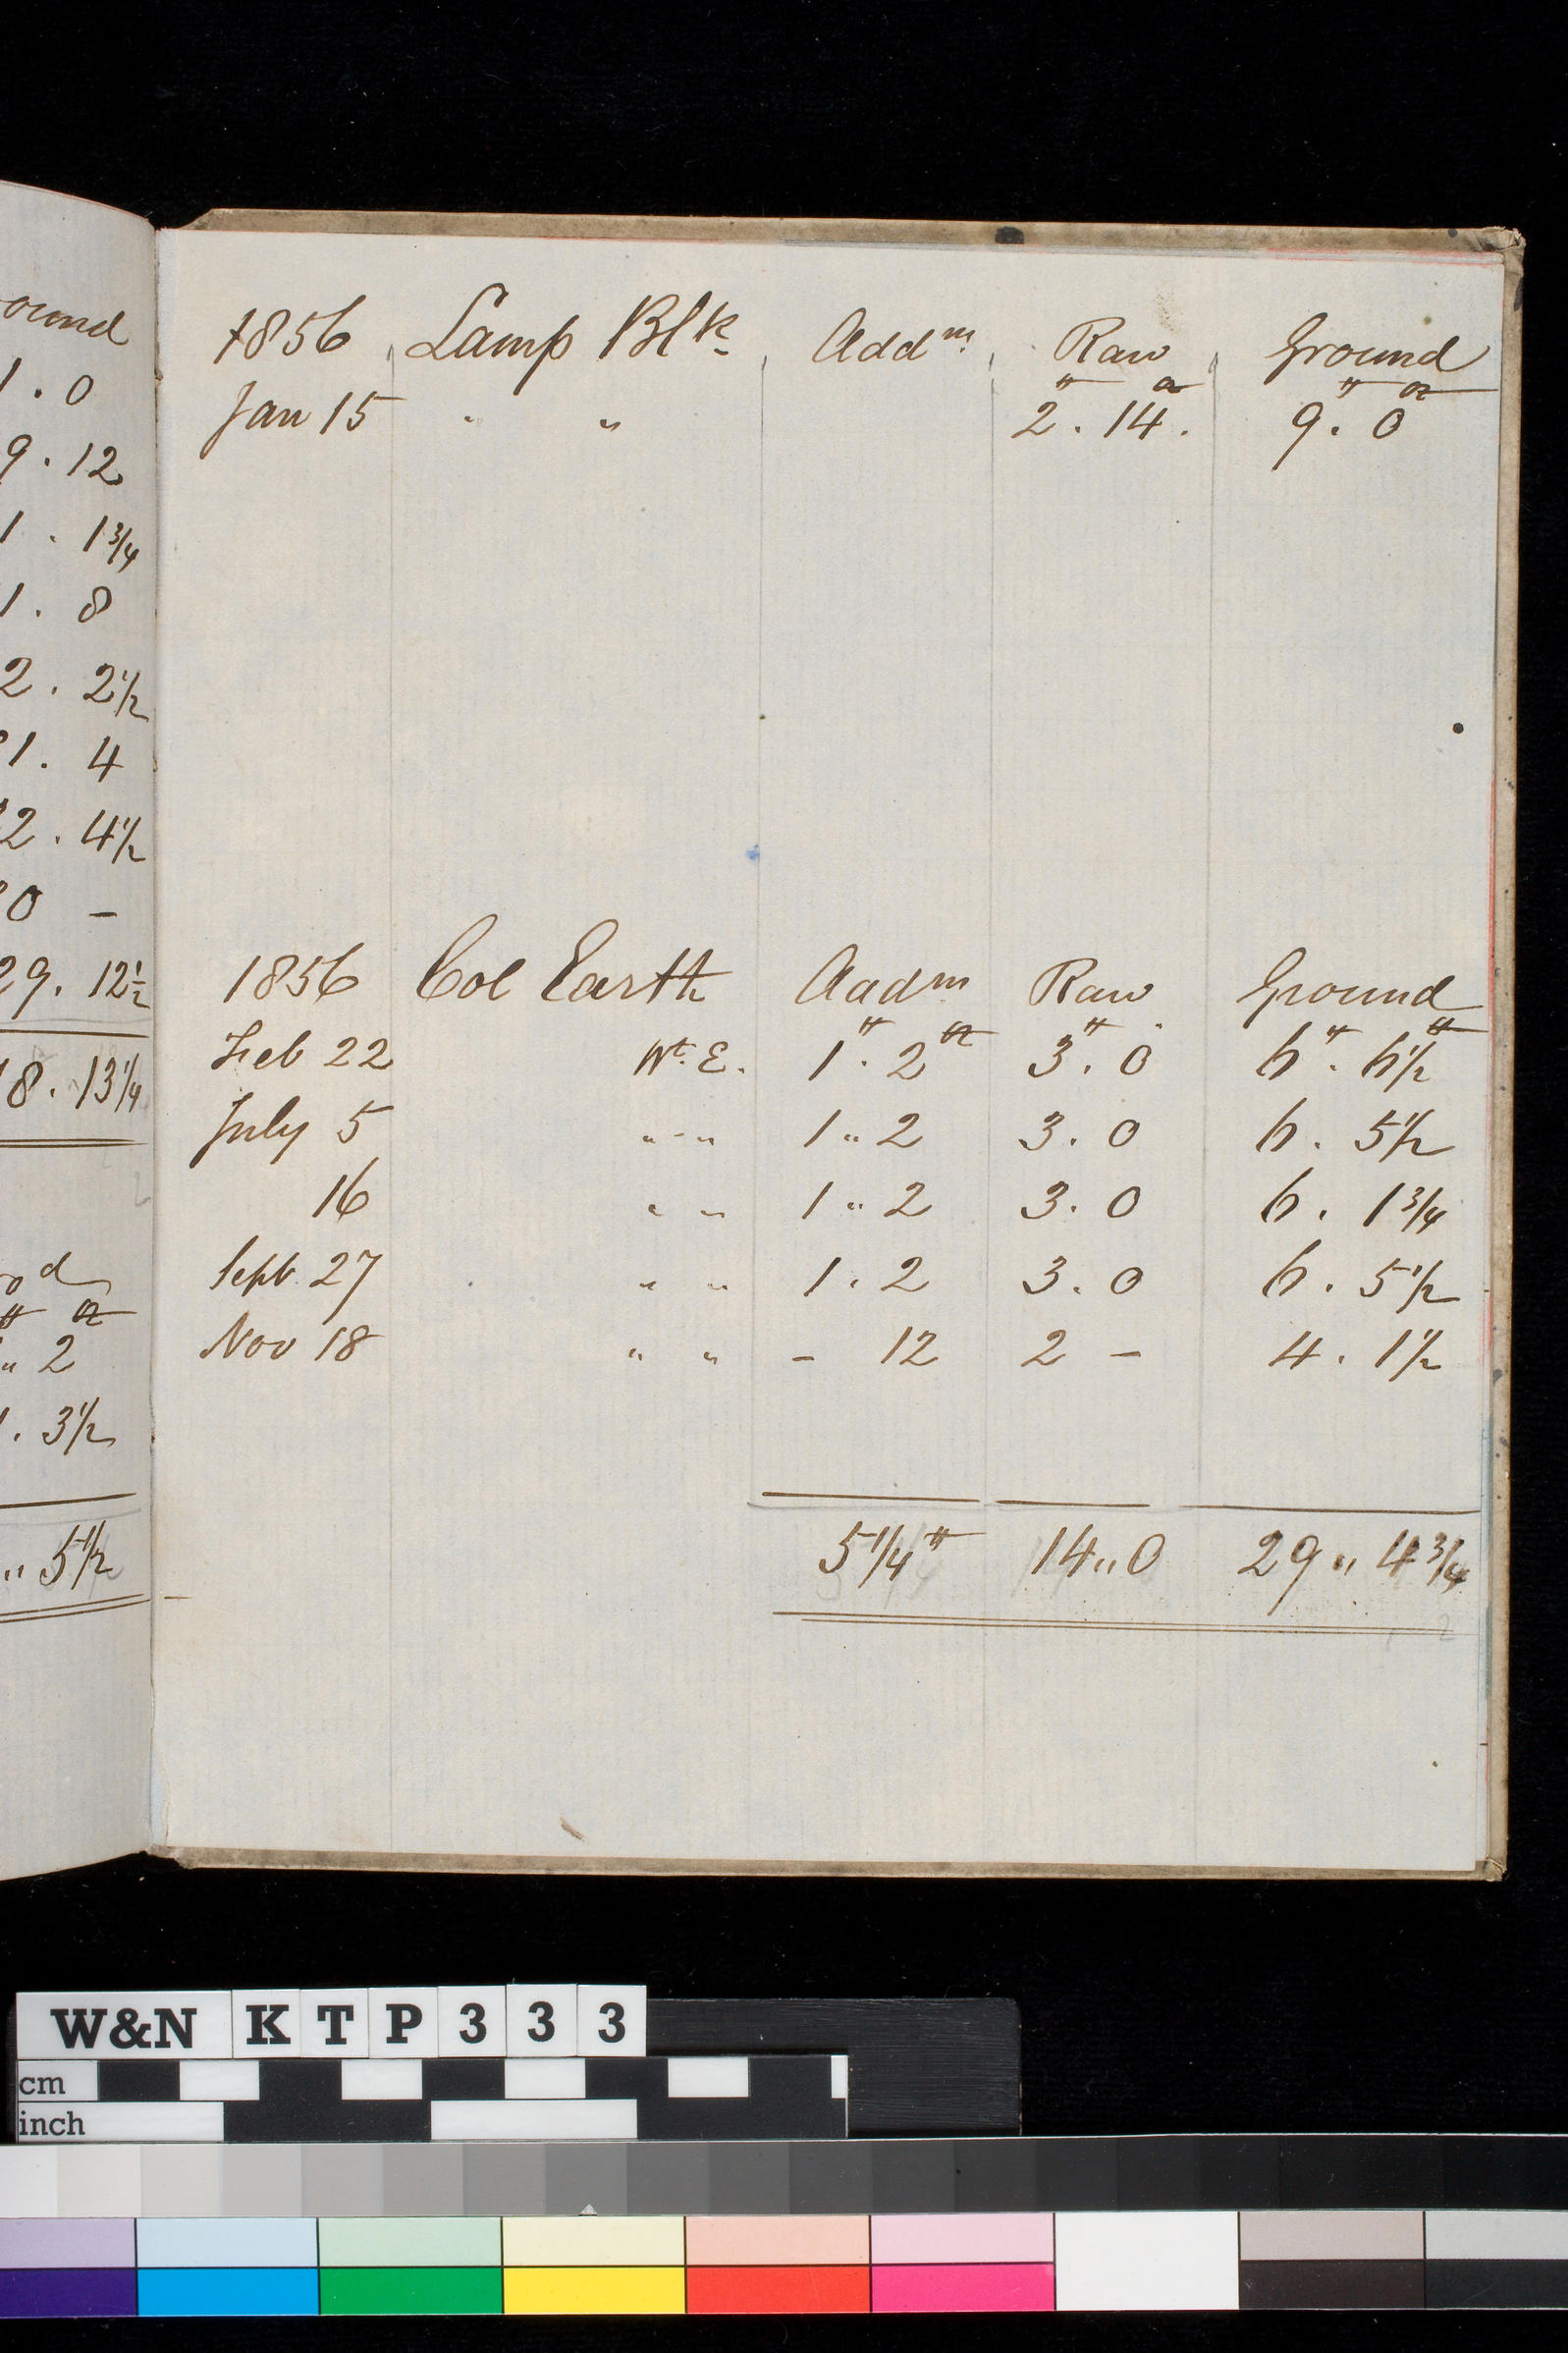 ound
1 . 0
9 . 12
1 . 1 3/4
1 . 8
2 . 2 1/2
1 . 4
2 . 4 1/2
0 –
29 . 12 1/2
8 . 13 1/4
2
1 . 3 1/2
" 5 1/2
1856 Lamp Blk Addm Raw Ground
Jan 15 " " 2 . 14 . 9 . 0
1856 Col Earth Aadm Raw Ground
Feb 22 Wt. E. 1 . 2 3 . 0 6 . 6 1/2
July 5 " " 1 " 2 3 . 0 6 . 5 1/2
16 " " 1 " 2 3 . 0 6 . 1 3/4
Sept 27 " " 1 . 2 3 . 0 6 . 5 1/2
Nov 18 " " – 12 2 – 4 . 1 1/2
5 1/4 14 " 0 29 " 4 3/4
W&N KTP333
cm
inch